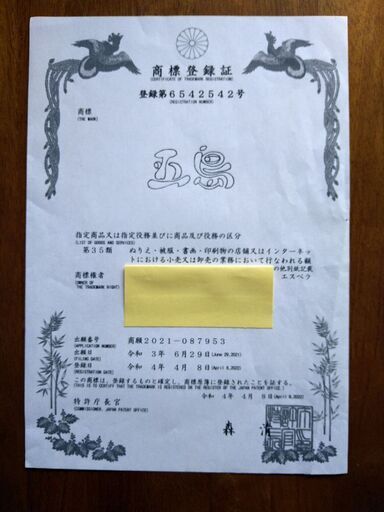 商標登録証
(CERTIFICATE OF TRADEMARK REGISTRATION)
登録第6542542号
(REGISTRATION NUMBER)
商標
(THE MARK)
五島
指定商品又は指定役務並びに商品及び役務の区分
(LIST OF GOODS AND SERVICES)
第35類 ぬりえ・被服・書画・印刷物の店舗又はインターネッ
トにおける小売又は卸売の業務において行なわれる顧
の他別紙記載
商標権者
(OWNER OF THE TRADEMARK RIGHT)
エスペラ
出願番号
(APPLICATION NUMBER)
商願2021-087953
出願日
(FILING DATE)
令和 3年 6月29日(June 29,2021)
登録日
(REGISTRATION DATE)
令和 4年 4月 8日(April 8,2022)
この商標は、登録するものと確定し、商標原簿に登録されたことを証する。
(THIS IS TO CERTIFY THAT THE TRADEMARK IS REGISTERED ON THE REGISTER OF THE JAPAN PATENT OFFICE.)
令和 4年 4月 8日(April 8,2022)
特許庁長官
(COMMISSIONER, JAPAN PATENT OFFICE)
森 清